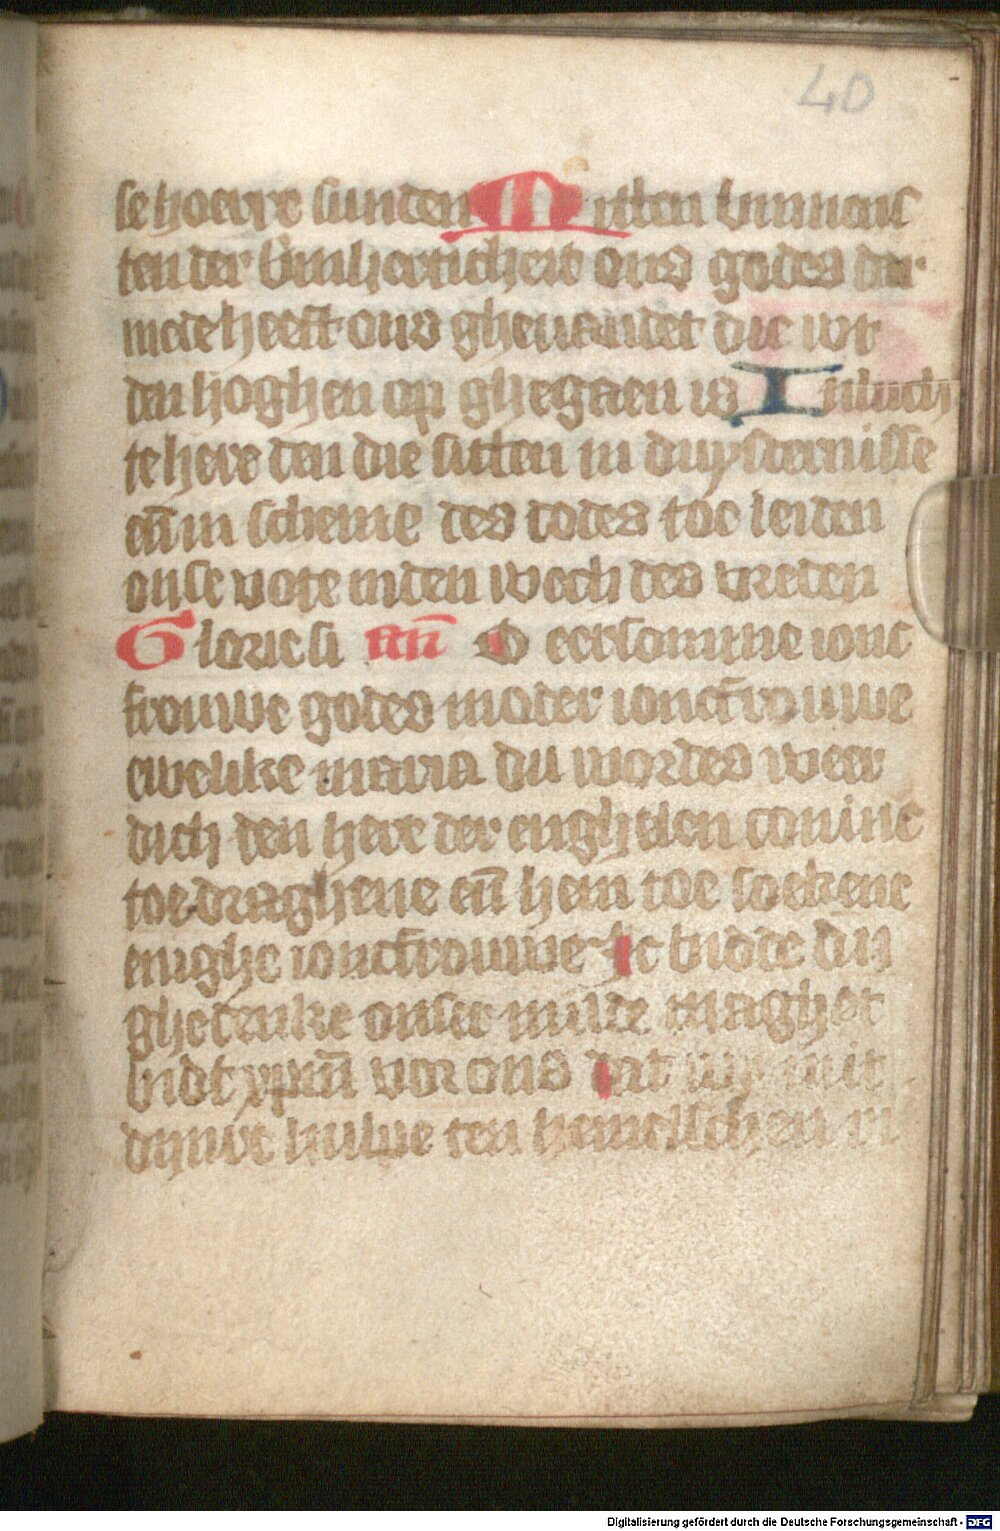 40
se hoerre sunden Mitten binnens
ten der bmherticheit ons godes dar
mede heeft ons gheuandet die wt
den hoghen op ghegaen is In luch
te here den die sitten in duysternisse
eñ in scheme des dodes toe leiden
onse vote inden wech des vreden
Glorie si añ O eersomme ionc
frouwe godes moder ioncfrouwe
ewelike maria du wordes weer
dich den here der enghelen coninc
toe draghene eñ hem toe soekene
enighe ioncfrouwe Ic bidde din
ghedenke onser milde maghet
bidt xpm̄ vor ons dat wy mit
dynre hulpe ten hemelschen ri
Digitalisierung gefördert durch die Deutsche Forschungsgemeinschaft - DFG